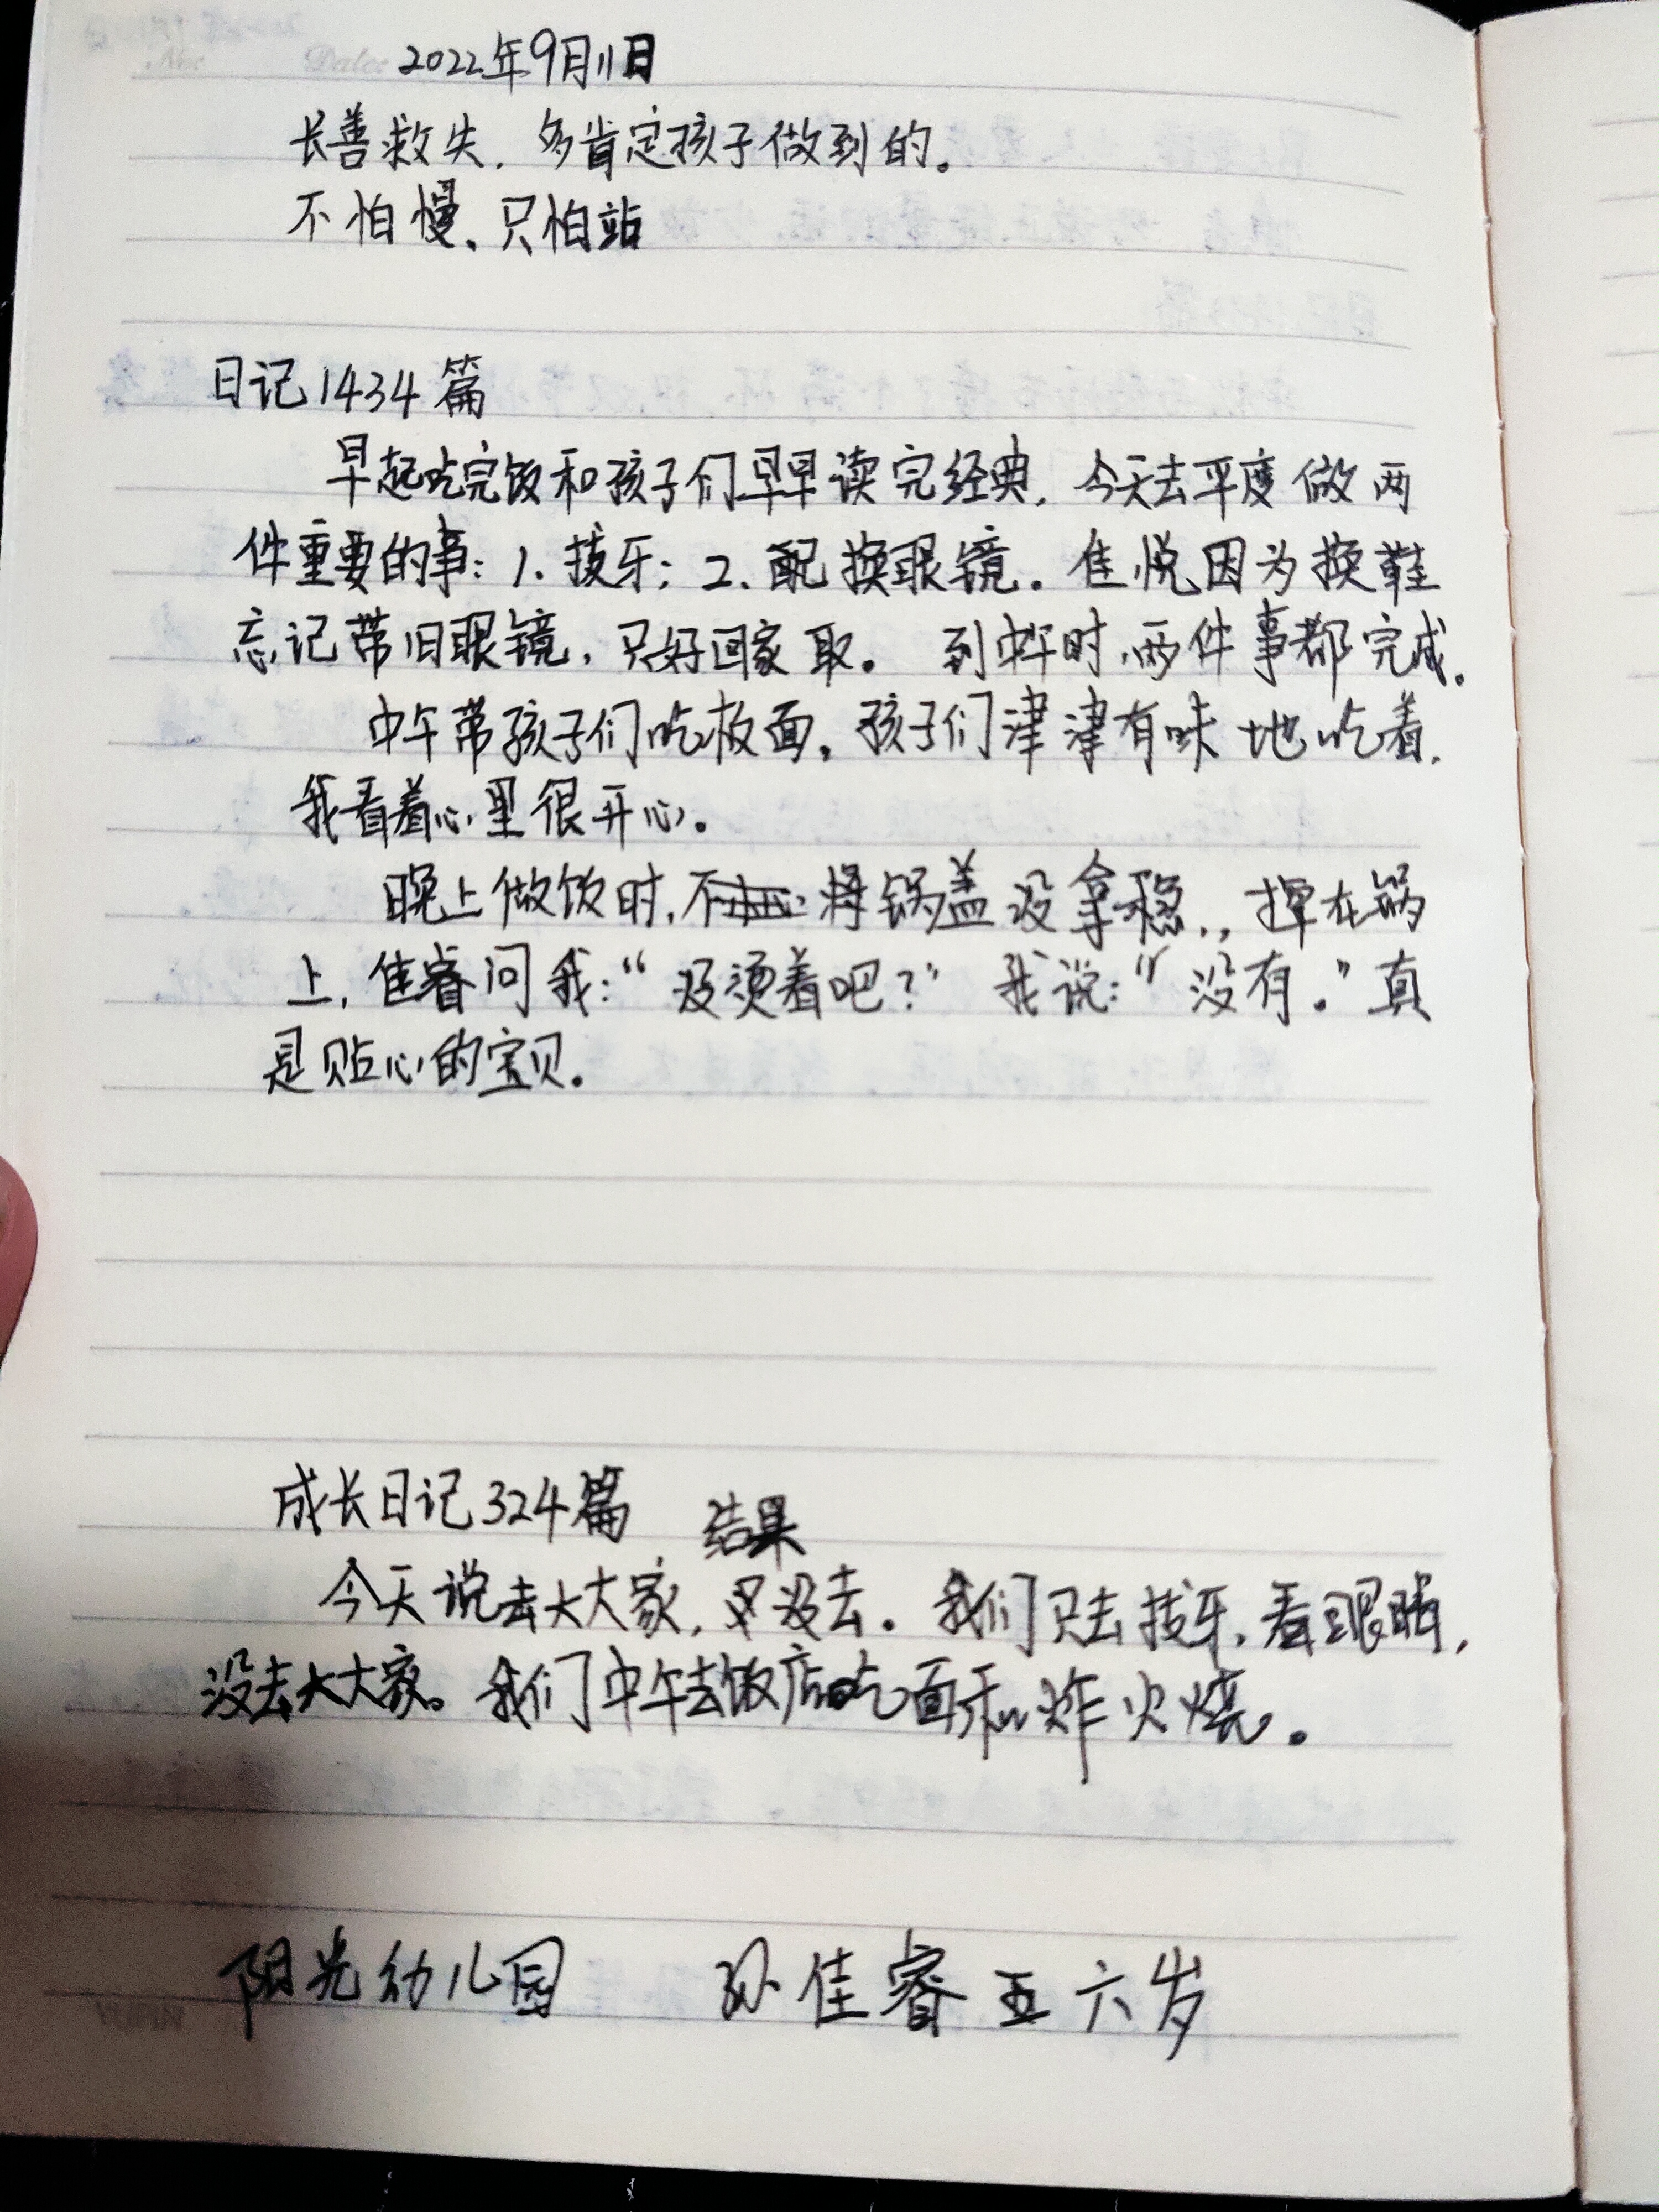 No: Date: 2022年9月11日
长善救失，多肯定孩子做到的。
不怕慢、只怕站
日记1434篇
早起吃完饭和孩子们早早读完经典，今天去平度做两
件重要的事：1、拔牙；2、配换眼镜。佳悦因为换鞋
忘记带旧眼镜，只好回家取。到中午时，两件事都完成。
中午带孩子们吃板面，孩子们津津有味地吃着，
我看着心里很开心。
晚上做饭时，将锅盖没拿稳，，掉在锅
上，佳睿问我：“没烫着吧？”我说：“没有。”真
是贴心的宝贝。
成长日记324篇
结果
今天说去大大家，又没去。我们只去拔牙，看眼睛，
没去大大家。我们中午去饭店吃面和炸火烧。
阳光幼儿园 孙佳睿 五六岁
YUPIN